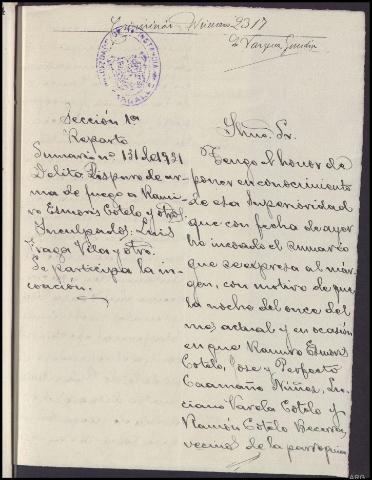 Número 2317
Sección 1ª
Reparto
Sumario nº 131 de 1921
Delito, Disparo de ar-
ma de fuego a Rami-
ro Esmoris Cotelo y otros.
Inculpados, Luis
Fraga Vilas y otro.
Se participa la in-
coación.
Iltmo. Sr.
Tengo el honor de
poner en conocimiento
de esa Superioridad
que con fecha de ayer
he incoado el sumario
que se expresa al már-
gen, con motivo de que
la noche del once del
mes actual y en ocasión
en que Ramiro Esmoris
Cotelo, Jose y Perfecto
Caamaño Niñez, Lu-
ciano Varela Cotelo y
Ramón Cotelo
vecinos de la parroquia
ARG